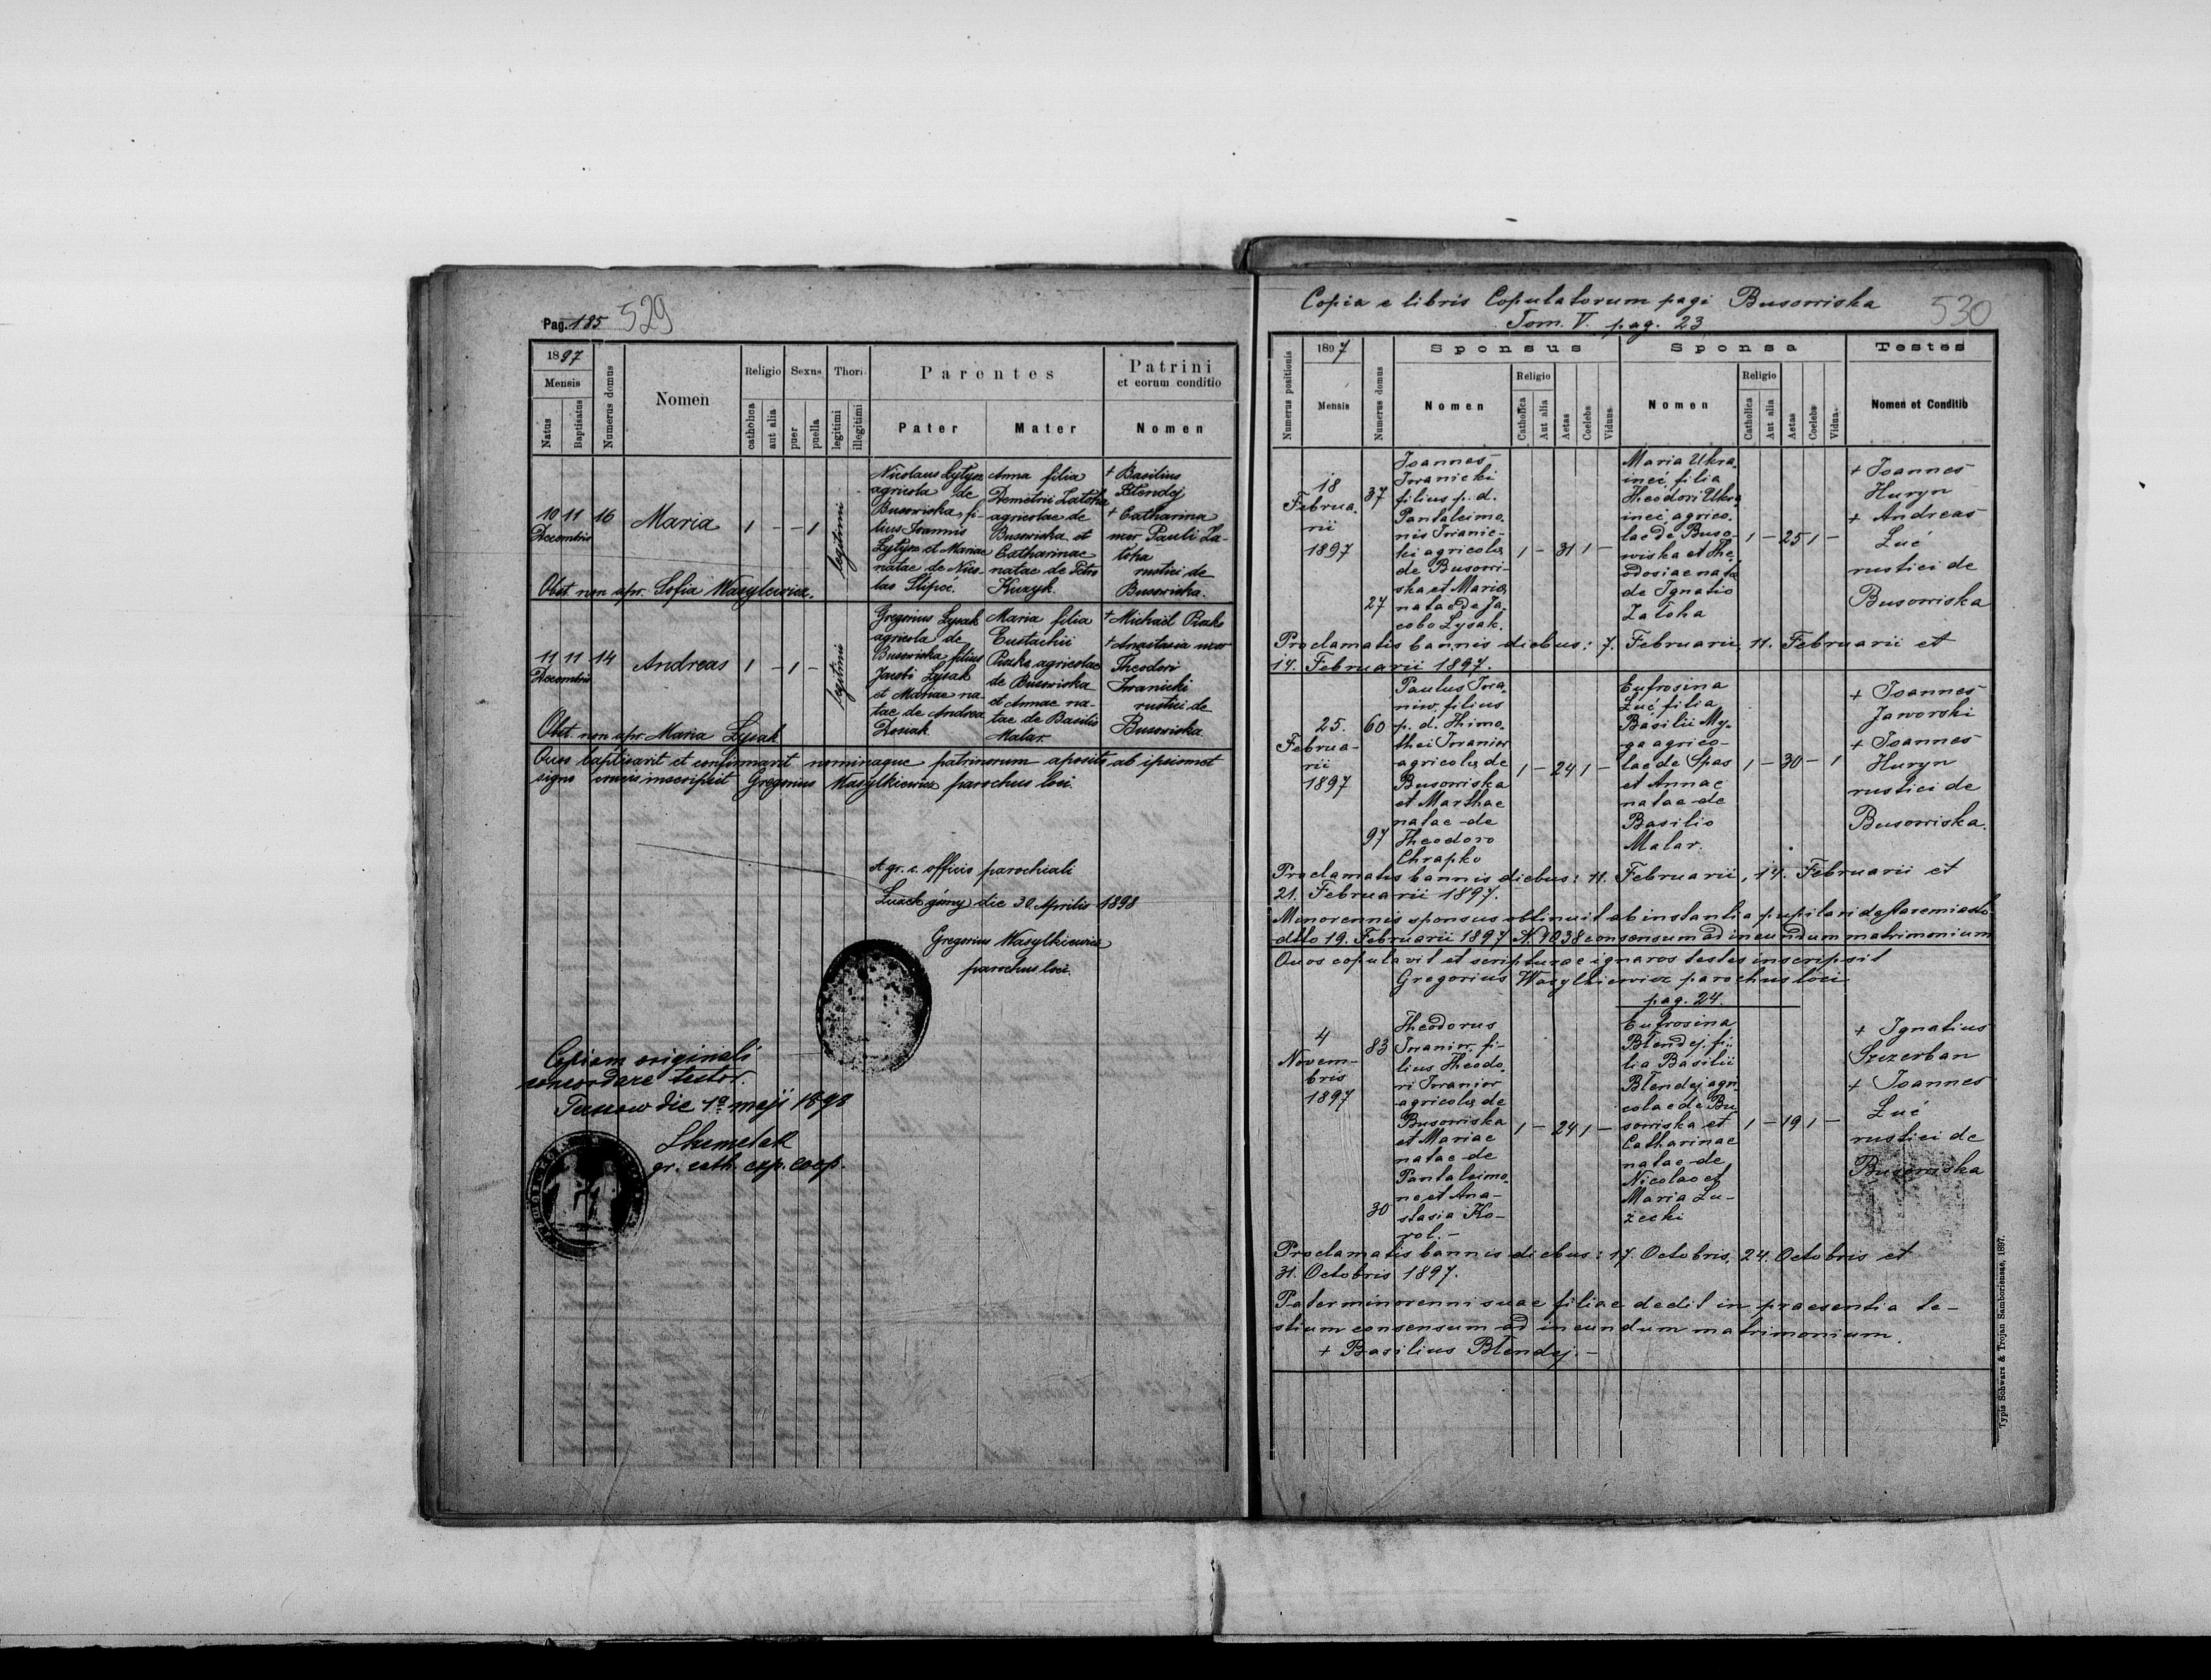 Pag. 185 529
1897
Mensis
Natus
Baptisatus
Numerus domus
Nomen
Religio
catholica
aut alia
Sexus
puer
puella
Thori
legitimi
illegitimi
Parentes
Pater
Mater
Patrini
et eorum conditio
Nomen
10 11
Decembris
16
Maria
1 - - 1
legitimi
Nicolaus Lytyn
agricola de
Busowiska, fi-
lius Joannis
Lytyn et Mariae
natae de Nico-
lao
Anna filia
Demetrii Zatoha
agricolae de
Busowiska et
Catharinae
natae de Petro
Kuzyk.
+ Basilius
Blendej
+ Catharina
uxor Pauli Za-
toha
rustici de
Busowiska.
Obst. non apr. Sofia Wasylewicz.
11 11
Decembris
14
Andreas
1 - 1 -
legitimi
Gregorius Lysak
agricola de
Busowiska filius
Jacobi Lysak
et Mariae na-
tae de Andrea
Maria filia
Eustachii
agricolae
de Busowiska
et Annae na-
tae de Basilio
Malar.
+ Michael
+ Anastasia uxor
Theodori
Iwanicki
rustici de
Busowiska
Obst. non apr. Maria Lysak
Quos baptisavit et confirmavit nominaque patrinorum aposito ab ipsismet
signo crucis inscripsit Gregorius Wasylkiewicz parochus loci.
A gr. c. officio parochiali
Łużek górny die 30. Aprilis 1898
Gregorius Wasylkiewicz
parochus loci.
Copiam originali
concordare testor.
die 1ª maji 1898
gr. cath. exp. coop.
Copia e libris Copulatorum pagi Busowiska
Tom. V. pag. 23
530
Numerus positionis
1897
Mensis
Numerus domus
Sponsus
Nomen
Religio
Catholica
Aut alia
Aetas
Coelebs
Viduus
Sponsa
Nomen
Religio
Catholica
Aut alia
Aetas
Coelebs
Vidua
Testes
Nomen et Conditio
18
Februa-
rii
1897
37
27
Joannes
Iwanicki
filius p. d.
Pantaleimo-
nis Iwanic-
ki agricolae
de Busowi-
ska et Mariae
natae de Ja-
cobo Lysak.
1 - 31 1 -
Maria Ukra-
inec, filia
Theodori Ukra-
inec, agrico-
lae de Buso-
wiska et The-
odosiae nata
de Ignatio
Zatoha
1 - 25 1 -
+ Joannes
Huryn
+ Andreas
Łuć
rustici de
Busowiska
Proclamatis bannis diebus: 7. Februarii, 11. Februarii et
14. Februarii 1897.
25.
Februa-
rii
1897
60
97
Paulus Iwa-
niw, filius
p. d. Thimo-
thei Iwaniw
agricolae de
Busowiska
et Marthae
natae de
Theodoro
Chrapko
1 - 24 1 -
Eufrosina
Łuć, filia
Basilii My-
ga agrico-
lae de Spas
et Annae
natae de
Basilio
Malar.
1 - 30 - 1
+ Joannes
Jaworski
+ Joannes
Huryn
rustici de
Busowiska.
Proclamatis bannis diebus: 11. Februarii, 14. Februarii et
21. Februarii 1897.
Minorennis sponsus obtinuit ab instantia pupilari de Staremiasto
ddto 19. Februarii 1897 N. 1038 consensum ad ineundum matrimonium
Quos copulavit et scripturae ignaros testes inscripsit
Gregorius Wasylkiewicz parochus loci
pag. 24.
4
Novem-
bris
1897
83
30
Theodorus
Iwaniw, fi-
lius Theodo-
ri Iwaniw
agricolae de
Busowiska
et Mariae
natae de
Pantaleimo-
ne et Ana-
stasia Ko-
wol. -
1 - 24 1 -
Eufrosina
Blendej, fi-
lia Basilii
Blendej agri-
colae de Bu-
sowiska et
Catharinae
natae de
Nicolao et
Maria Łu-
żecki
1 - 19 1 -
+ Ignatius
Szczerban
+ Joannes
Łuć
rustici de
Busowiska
Proclamatis bannis diebus: 17. Octobris, 24. Octobris et
31. Octobris 1897.
Pater minorenni suae filiae dedit in praesentia te-
stium consensum ad ineundum matrimonium.
+ Basilius Blendej. -
Typis Schwarz & Trojan Samboriensae, 1897.